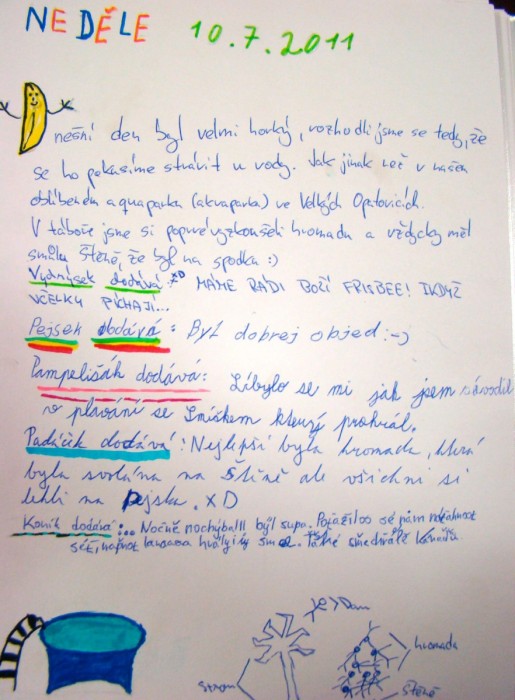 NEDĚLE 10.7.2011
nešní den byl velmi horký, rozhodli jsme se tedy, že
se ho pokusíme strávit u vody. Jak jinak než v našem
oblíbeném aquaparku (akvaparku) ve Velkých Opatovicích.
V táboře jsme si poprvé vyzkoušeli hromadu a vždycky měl
smůlu Štěně, že byl na spodku :)
Vydrýsek dodává: XD MÁME RÁDI BOŽÍ FRISBEE! I KDYŽ
VČELKY PÍCHAJÍ...
Pejsek dodává: Byl dobrej objed :-)
Pampelišák dodává: Líbylo se mi jak jsem závodil
v plavání se Smíškem který prohrál.
Padáček dodává: Nejlepší byla hromada, která
byla svolána na Štěně ale všichni si
lehli na Pejska. XD
Koník dodává:... Noční nochyball byl supa.
Dan
strom
hromada
Štěně